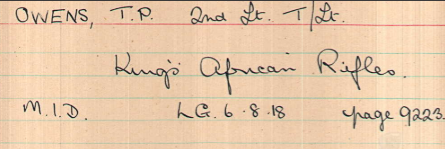 OWENS, T.P. 2nd Lt. T/Lt.
King's African Rifles.
M.I.D. LG. 6.8.18 page 9223.